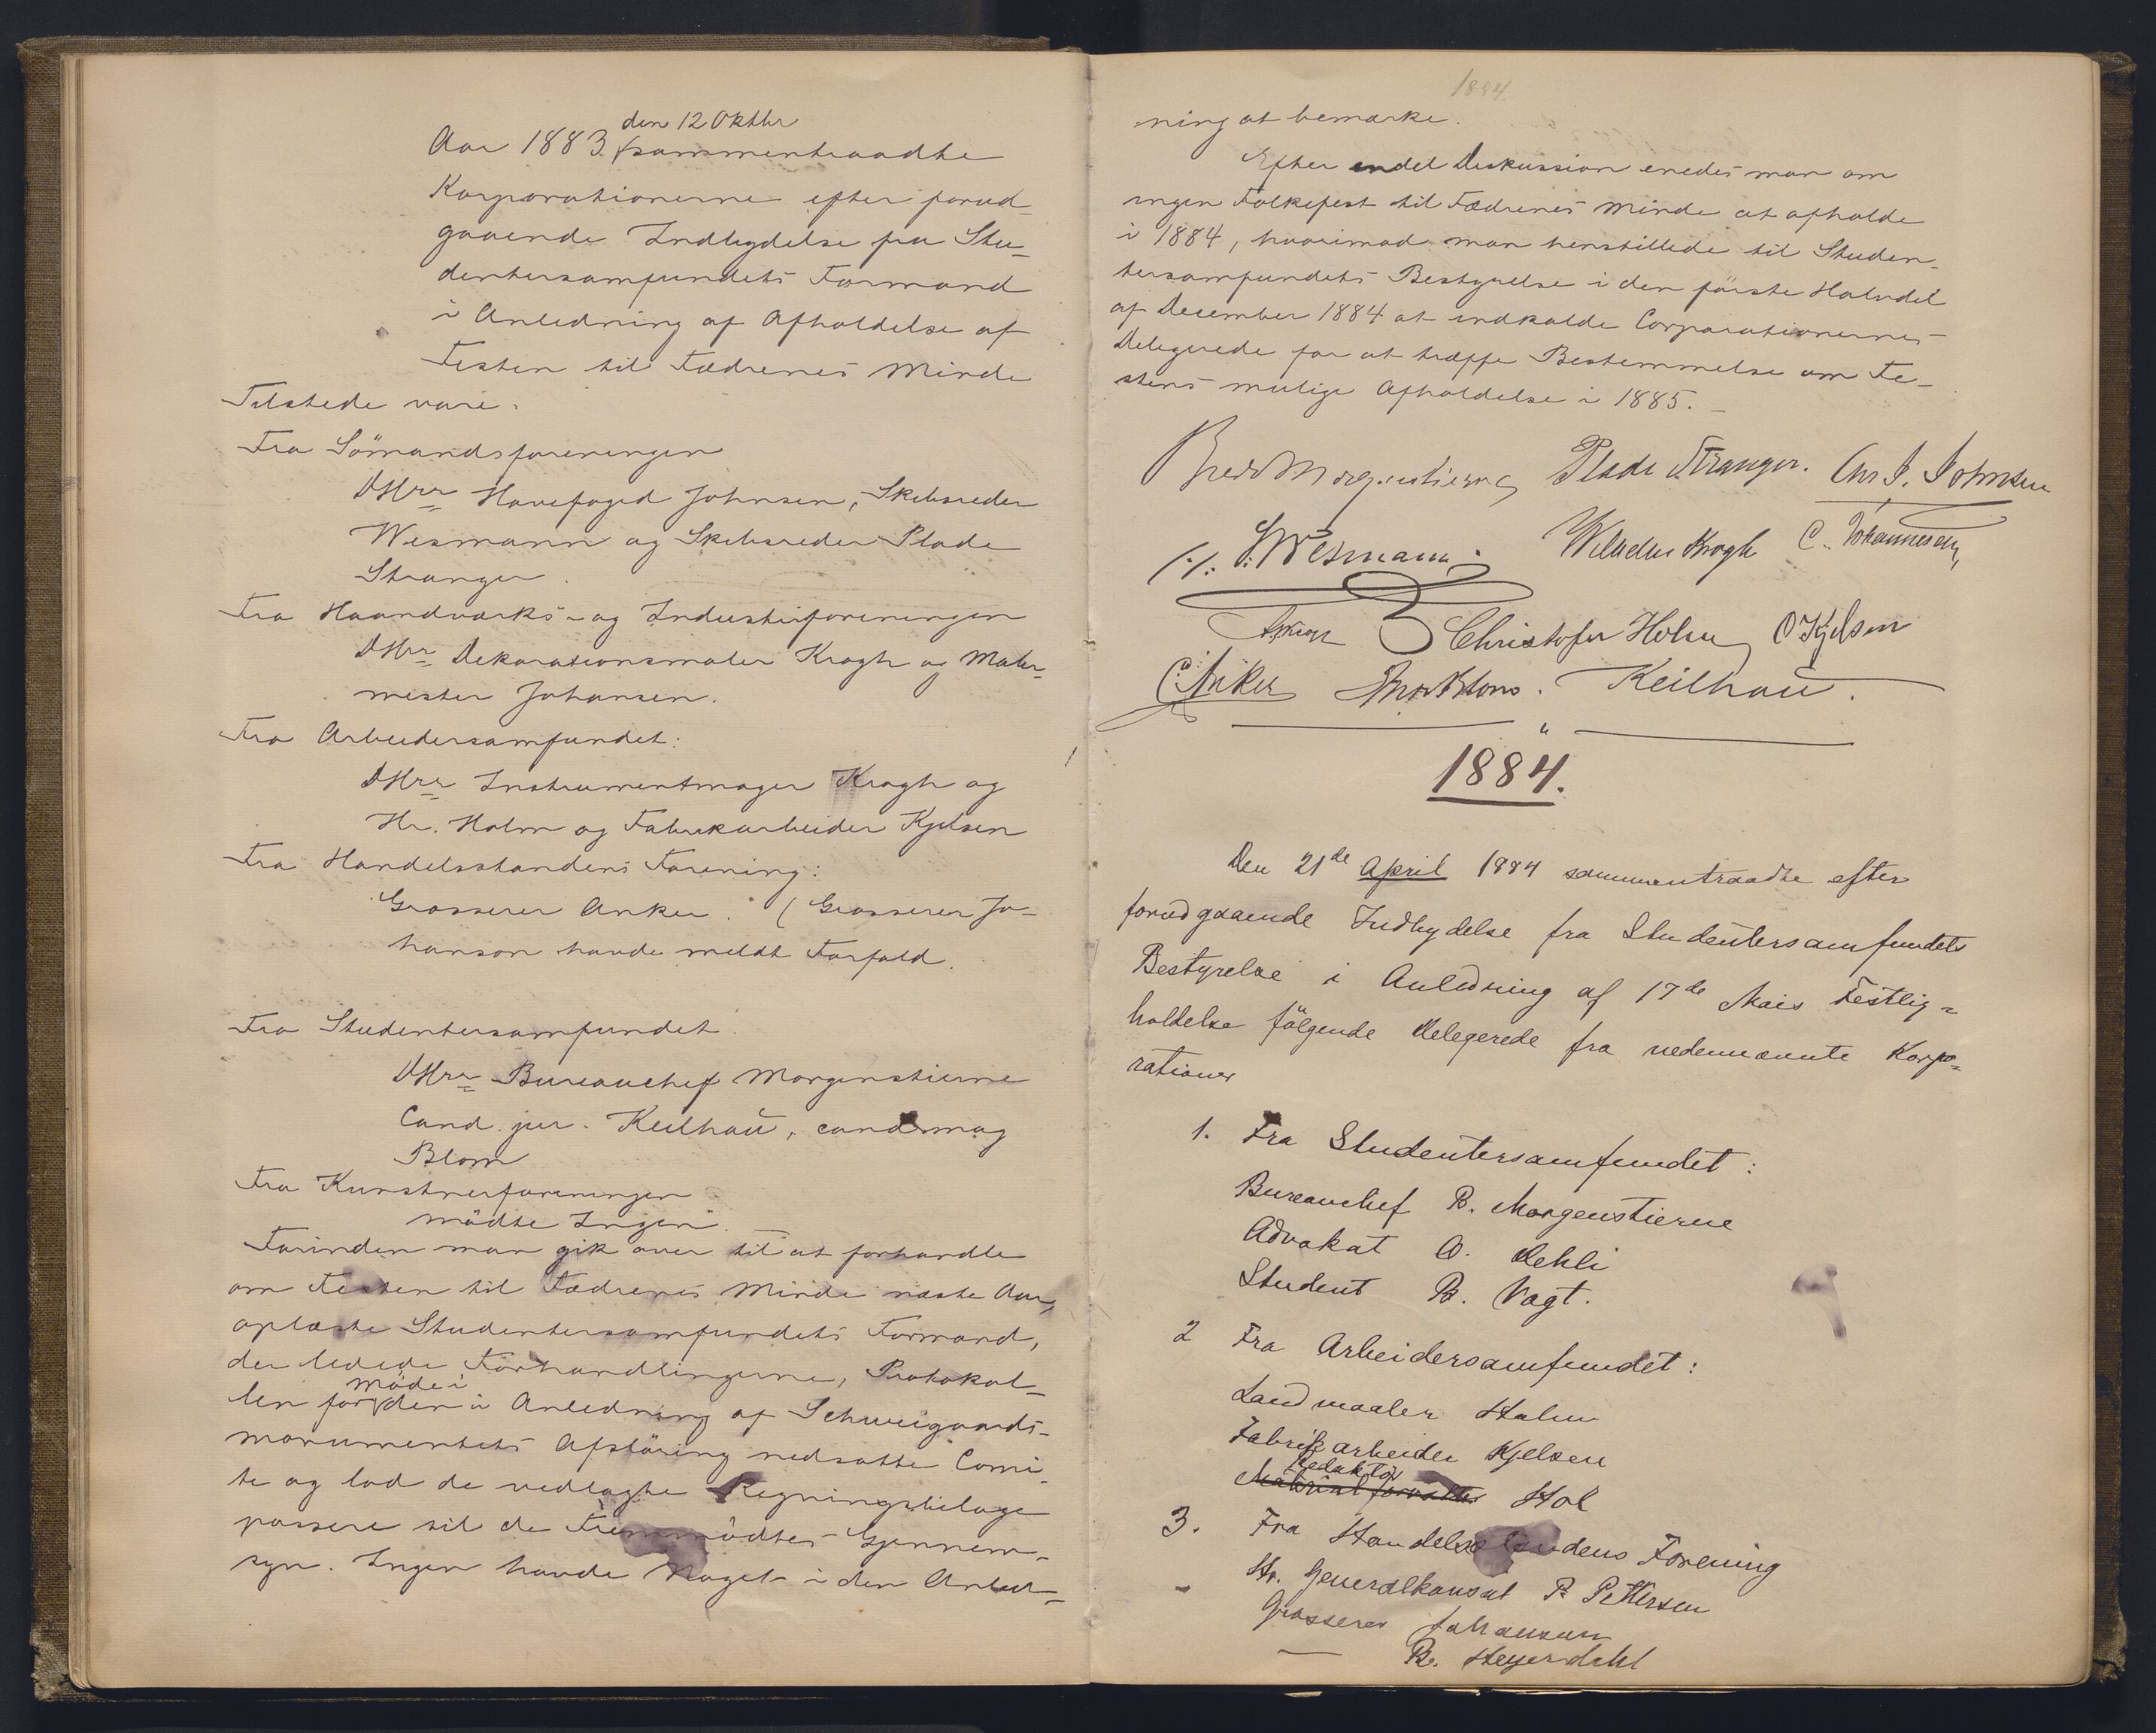 den 12 Oktbr
Aar 1883 sammentraadte
Korporationerne efter forud-
gaaende Indbydelse fra Stu-
dentersamfundets Formand
i Anledning af Afholdelse af
Festen til Fædrenes Minde
Tilstede vare:
Fra Sömandsforeningen
DHrr Havefoged Johnsen, Skibsreder
Wesmann og Skibsreder Plade
Stranger.
Fra Haandværks- og Industriforeningen
DHrr Dekorationsmaler Krogh og Maler-
mester Johansen.
Fra Arbeidersamfundet:
DHrr Instrumentmager Krogh og
Hr. Holm og Fabrikarbeider Kjelsen
Fra Handelsstandens Forening:
Grosserer Anker. (Grosserer Jo-
hanson havde meldt Forfald.
Fra Studentersamfundet.
DHrr Bureauchef Morgenstierne
Cand. jur. Keilhau, cand mag
Blom
Fra Kunstnerforeningen
mödte Ingen.
Forinden man gik over til at forhandle
om Festen til Fædrenes Minde næste Aar,
oplæste Studentersamfundets Formand,
der ledede Forhandlingerne, Protokol-
möde i
len for den i Anledning af Schweigaards-
monumentets Afsløring nedsatte Comi-
te og lod de vedlagte Regningsbilage
passere til de Fremmödtes Gjennem-
syn. Ingen havde Noget i den Anled-
1884.
ning at bemærke.
Efter endel Diskussion enedes man om
ingen Folkefest til Fædrenes Minde at afholde
i 1884, hvorimod man henstillede til Studen-
tersamfundets Bestyrelse i den förste Halvdel
af December 1884 at indkalde Corporationernes
Delegerede for at træffe Bestemmelse om Fe-
stens mulige Afholdelse i 1885.
Bredo Morgenstierne Plade Stranger. Chr J. Johnsen
S. Wesmann. Wilhelm Krogh C. Johannesen
Christofer Holm O Kjelsen
C Anker Blom. Keilhau.
1884.
Den 21de April 1884 sammentraadte efter
forudgaaende Indbydelse fra Studentersamfundets
Bestyrelse i Anledning af 17de Mais Festlig-
holdelse fölgende Delegerede fra nedennævnte Korpo-
rationer
1. Fra Studentersamfundet:
Bureauchef B. Morgenstierne
Advokat O. Dehli
Student B. Vogt.
2 Fra Arbeidersamfundet:
Landmaaler Holm
Fabrikarbeider Kjelsen
Redaktör
Materialforvalter Hol
3. Fra Handelsstandens Forening
Hr. Generalkonsul P. Pettersen
Grosserer Johansen
— B. Heyerdahl